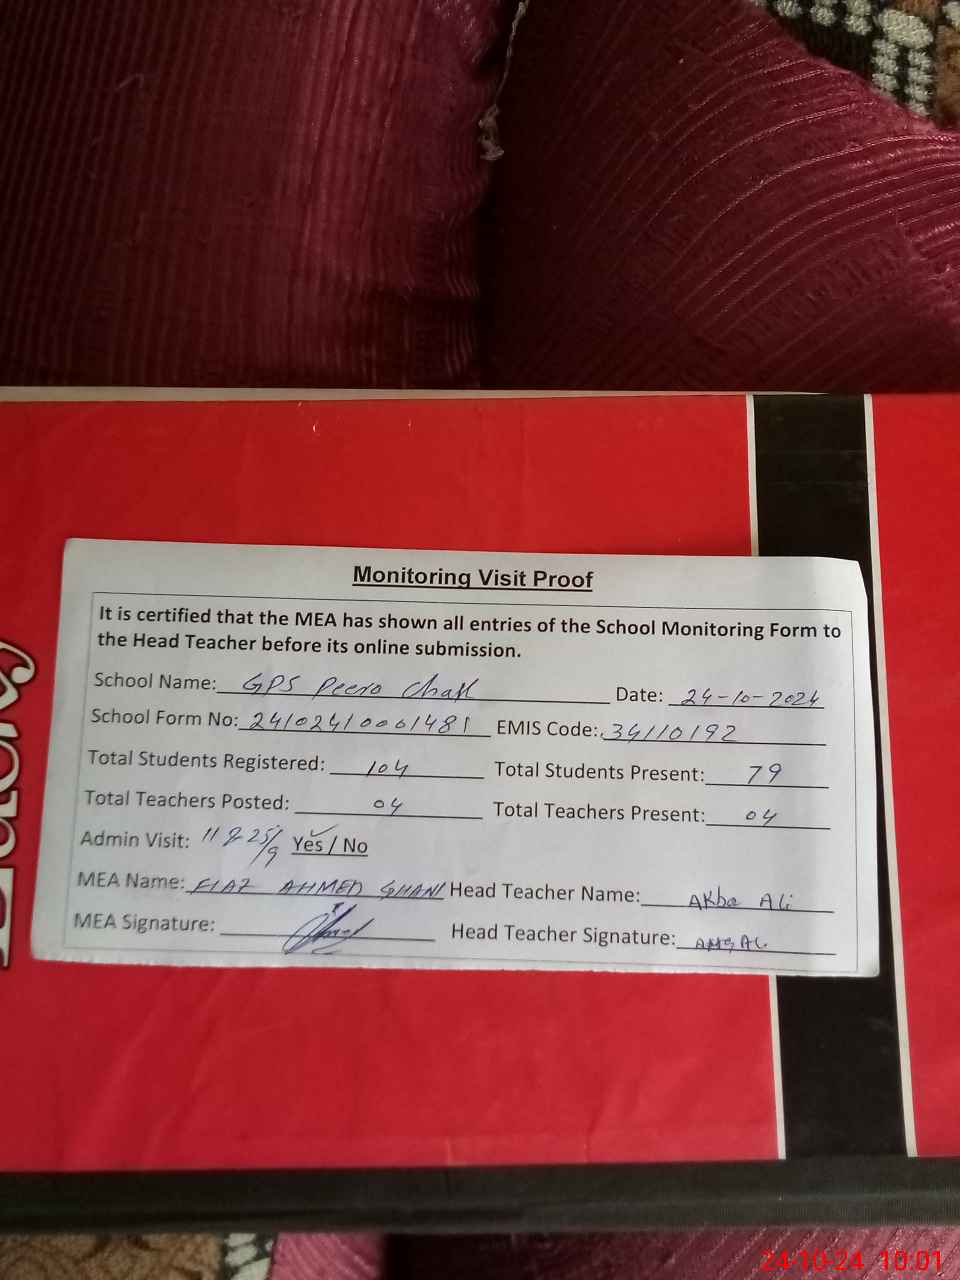 Monitoring Visit Proof
It is certified that the MEA has shown all entries of the School Monitoring Form to
the Head Teacher before its online submission.
School Name: GPS Peero Chak Date: 24-10-2024
School Form No: 24102410001481 EMIS Code: 34110192
Total Students Registered: 104 Total Students Present: 79
Total Teachers Posted: 04 Total Teachers Present: 04
Admin Visit: 11 & 25/9 Yes / No
MEA Name: FIAZ AHMED GHANI Head Teacher Name: Akba Ali
MEA Signature: Head Teacher Signature:
24-10-24 10:01